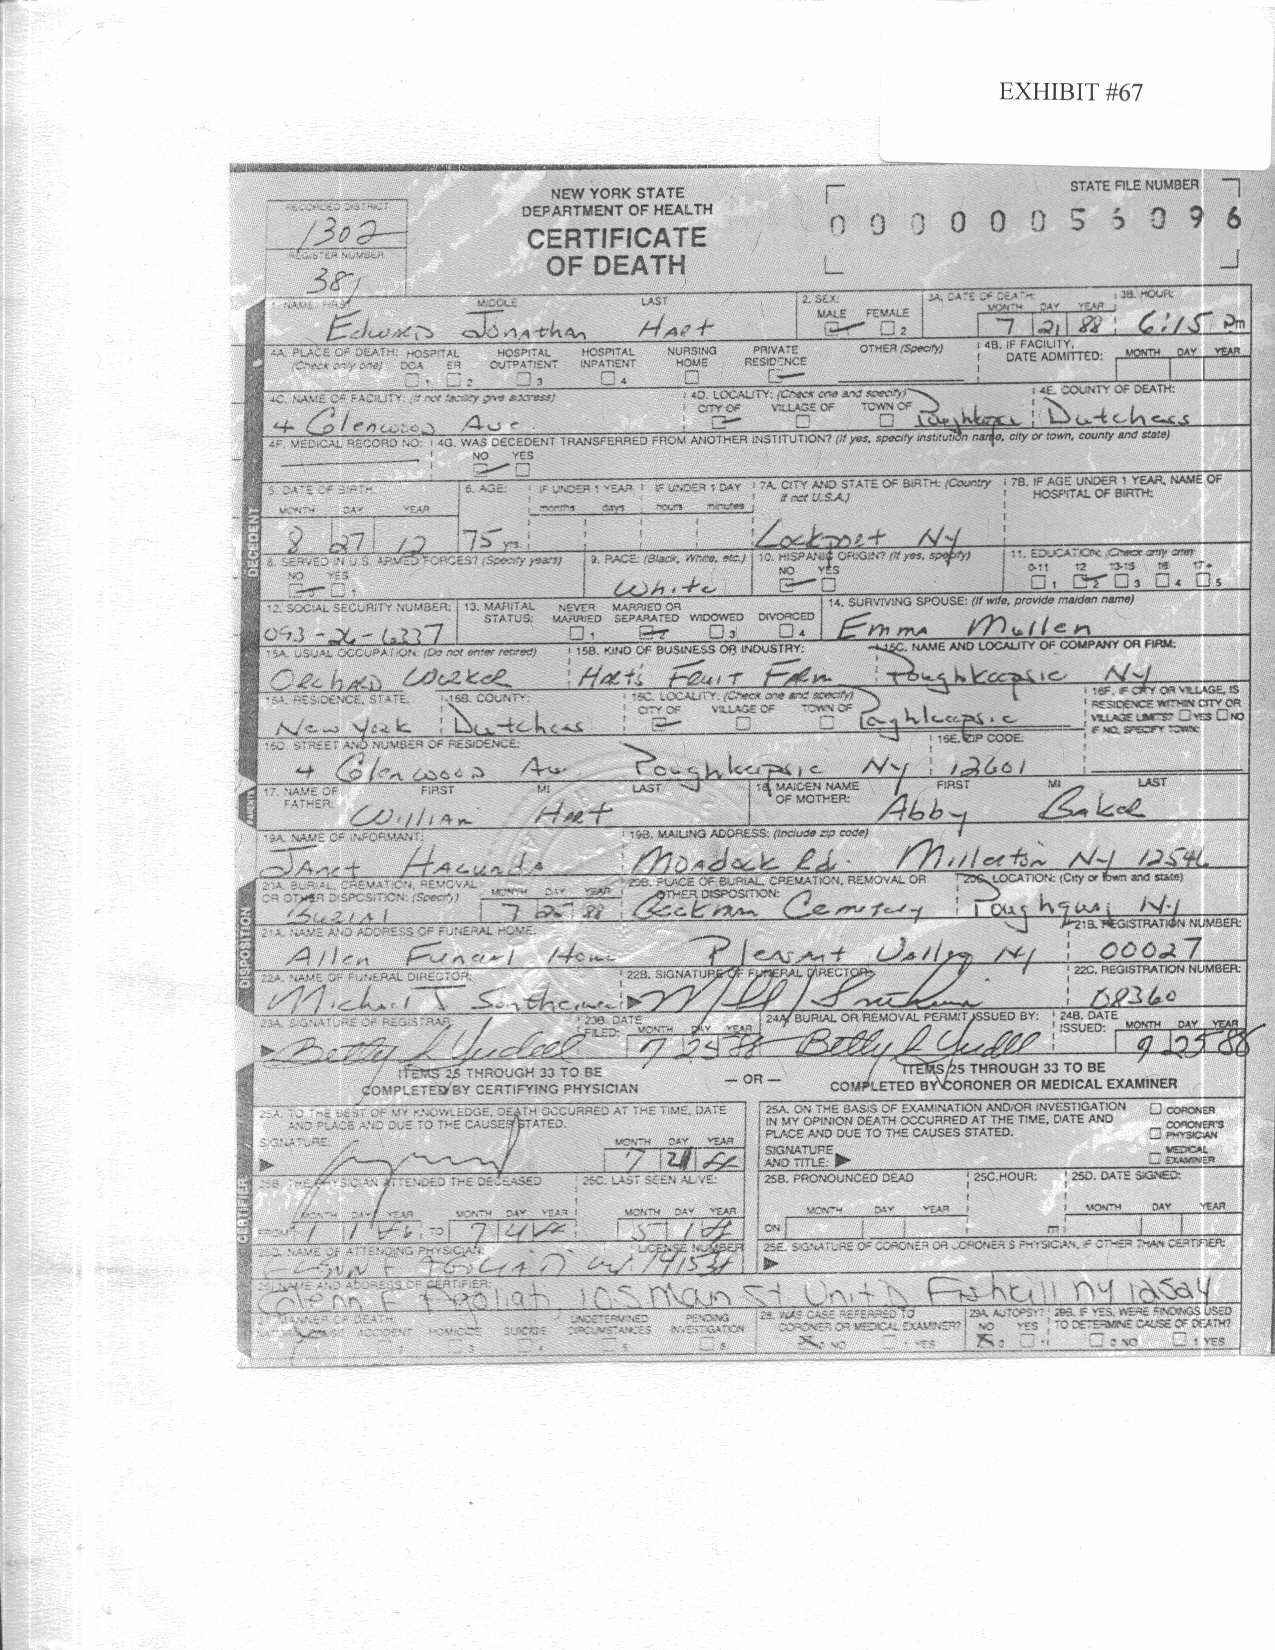 EXHIBIT #67
NEW YORK STATE
DEPARTMENT OF HEALTH
CERTIFICATE
OF DEATH
RECORDED DISTRICT
1302
REGISTER NUMBER
381
STATE FILE NUMBER
0 0 0 0 0 0 5 6 0 9 6
1. NAME: FIRST MIDDLE LAST
Edward Jonathan Hart
2. SEX: MALE FEMALE 2
3A. DATE OF DEATH: MONTH DAY YEAR
7 21 88
3B. HOUR:
6:15 Pm
4A. PLACE OF DEATH: (Check only one) HOSPITAL DOA ER HOSPITAL OUTPATIENT HOSPITAL INPATIENT NURSING HOME PRIVATE RESIDENCE OTHER (Specify)
4B. IF FACILITY, DATE ADMITTED: MONTH DAY YEAR
4C. NAME OF FACILITY: (If not facility give address)
4 Glenwood Ave.
4D. LOCALITY: (Check one and specify) CITY OF VILLAGE OF TOWN OF
Poughkeepsie
4E. COUNTY OF DEATH:
Dutchess
4F. MEDICAL RECORD NO:
4G. WAS DECEDENT TRANSFERRED FROM ANOTHER INSTITUTION? (If yes, specify institution name, city or town, county and state)
NO YES
5. DATE OF BIRTH: MONTH DAY YEAR
8 27 12
6. AGE:
75 yrs.
IF UNDER 1 YEAR months days
IF UNDER 1 DAY hours minutes
7A. CITY AND STATE OF BIRTH: (Country if not U.S.A.)
Lockport NY
7B. IF AGE UNDER 1 YEAR, NAME OF HOSPITAL OF BIRTH:
8. SERVED IN U.S. ARMED FORCES? (Specify years)
NO YES
9. RACE: (Black, White, etc.)
White
10. HISPANIC ORIGIN? (If yes, specify)
NO YES
11. EDUCATION: (Check only one)
0-11 12 13-15 16 17+
12. SOCIAL SECURITY NUMBER:
093-26-6337
13. MARITAL STATUS: NEVER MARRIED MARRIED OR SEPARATED WIDOWED DIVORCED
14. SURVIVING SPOUSE: (If wife, provide maiden name)
Emma Mullen
15A. USUAL OCCUPATION: (Do not enter retired)
Orchard Worker
15B. KIND OF BUSINESS OR INDUSTRY:
Harts Fruit Farm
15C. NAME AND LOCALITY OF COMPANY OR FIRM:
Poughkeepsie NY
16A. RESIDENCE, STATE:
New York
16B. COUNTY:
Dutchess
16C. LOCALITY: (Check one and specify) CITY OF VILLAGE OF TOWN OF
Poughkeepsie
16F. IF CITY OR VILLAGE, IS RESIDENCE WITHIN CITY OR VILLAGE LIMITS? YES NO IF NO, SPECIFY TOWN:
16D. STREET AND NUMBER OF RESIDENCE:
4 Glenwood Ave Poughkeepsie NY
16E. ZIP CODE:
12601
17. NAME OF FATHER: FIRST MI LAST
William Hart
18. MAIDEN NAME OF MOTHER: FIRST MI LAST
Abby Baker
19A. NAME OF INFORMANT:
Janet
19B. MAILING ADDRESS: (Include zip code)
Rd. Millerton NY 12546
20A. BURIAL, CREMATION, REMOVAL OR OTHER DISPOSITION: (Specify) MONTH DAY YEAR
Burial 7 25 88
20B. PLACE OF BURIAL, CREMATION, REMOVAL OR OTHER DISPOSITION:
Cemetery
20C. LOCATION: (City or town and state)
NY
21A. NAME AND ADDRESS OF FUNERAL HOME:
Allen Funeral Home Pleasant Valley NY
21B. REGISTRATION NUMBER:
00027
22A. NAME OF FUNERAL DIRECTOR:
Michael J
22B. SIGNATURE OF FUNERAL DIRECTOR:
22C. REGISTRATION NUMBER:
08360
23A. SIGNATURE OF REGISTRAR:
Betty
23B. DATE FILED: MONTH DAY YEAR
7 25 88
24A. BURIAL OR REMOVAL PERMIT ISSUED BY:
Betty
24B. DATE ISSUED: MONTH DAY YEAR
25 88
ITEMS 25 THROUGH 33 TO BE COMPLETED BY CERTIFYING PHYSICIAN
— OR —
ITEMS 25 THROUGH 33 TO BE COMPLETED BY CORONER OR MEDICAL EXAMINER
25A. TO THE BEST OF MY KNOWLEDGE, DEATH OCCURRED AT THE TIME, DATE AND PLACE AND DUE TO THE CAUSES STATED.
SIGNATURE: MONTH DAY YEAR
25A. ON THE BASIS OF EXAMINATION AND/OR INVESTIGATION IN MY OPINION DEATH OCCURRED AT THE TIME, DATE AND PLACE AND DUE TO THE CAUSES STATED.
SIGNATURE AND TITLE:
CORONER
CORONER'S PHYSICIAN
MEDICAL EXAMINER
25B. THE PHYSICIAN ATTENDED THE DECEASED
MONTH DAY YEAR TO MONTH DAY YEAR
25C. LAST SEEN ALIVE: MONTH DAY YEAR
25B. PRONOUNCED DEAD MONTH DAY YEAR
ON
25C. HOUR: m
25D. DATE SIGNED: MONTH DAY YEAR
25D. NAME OF ATTENDING PHYSICIAN: LICENSE NUMBER
25E. SIGNATURE OF CORONER OR CORONER'S PHYSICIAN, IF OTHER THAN CERTIFIER:
NAME AND ADDRESS OF CERTIFIER:
Glenn F 105 Main St Unit D Fishkill NY 12524
27. MANNER OF DEATH: ACCIDENT HOMICIDE SUICIDE UNDETERMINED CIRCUMSTANCES PENDING INVESTIGATION
28. WAS CASE REFERRED TO CORONER OR MEDICAL EXAMINER?
NO YES
29A. AUTOPSY? NO YES
29B. IF YES, WERE FINDINGS USED TO DETERMINE CAUSE OF DEATH?
NO YES
DECEDENT
PARENTS
DISPOSITION
CERTIFIER